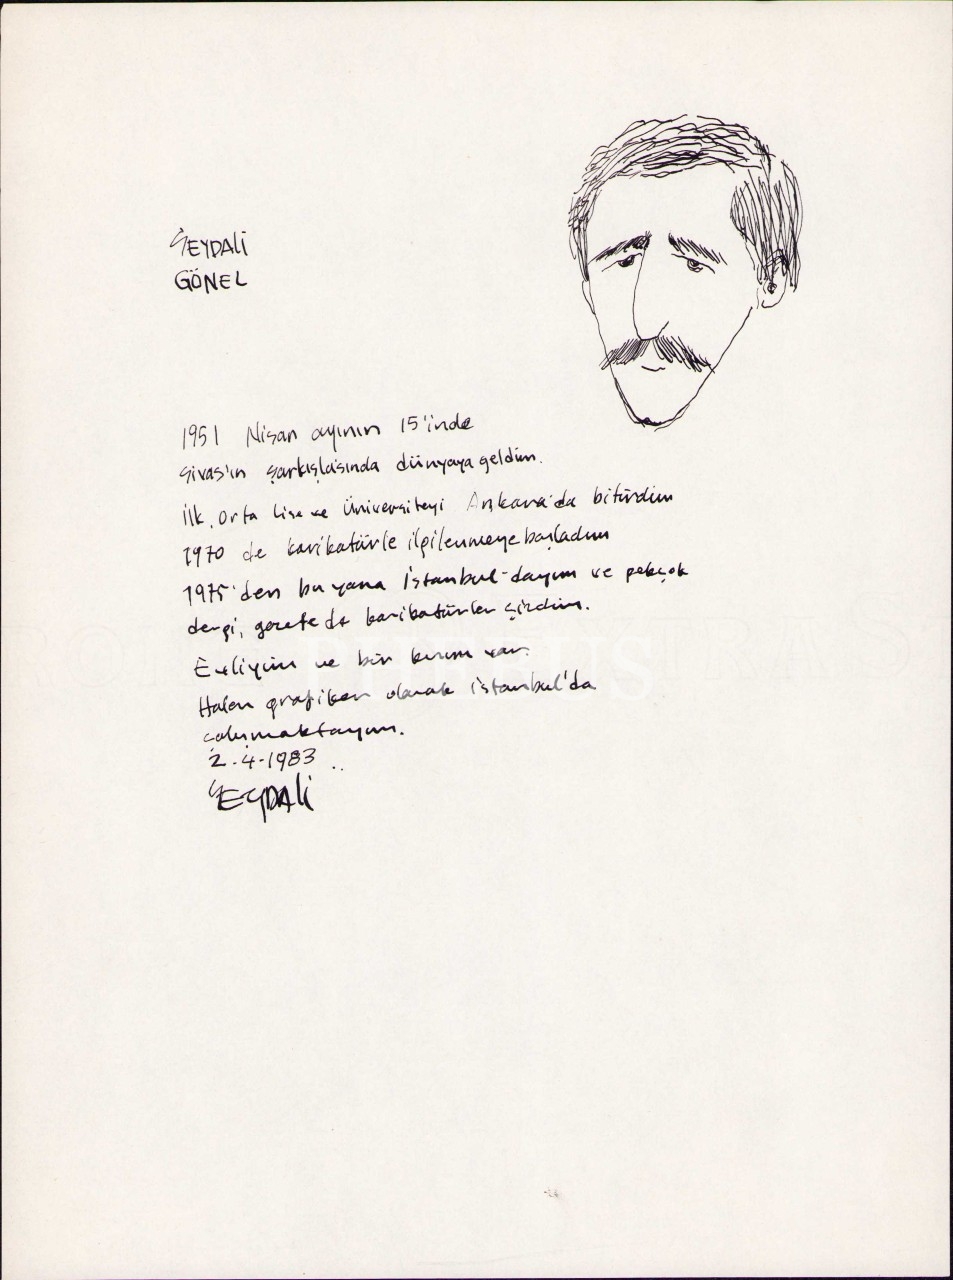 SEYDALİ
GÖNEL
1951 Nisan ayının 15'inde
Sivas'ın Şarkışlasında dünyaya geldim.
İlk, Orta Lise ve Üniversiteyi Ankara'da bitirdim
1970 de karikatürle ilgilenmeye başladım
1975'den bu yana İstanbul-dayım ve pekçok
dergi, gazetede karikatürler çizdim.
Evliyim ve bir kızım var.
Halen grafiker olarak İstanbul'da
çalışmaktayım.
2-4-1983
SEYDALİ